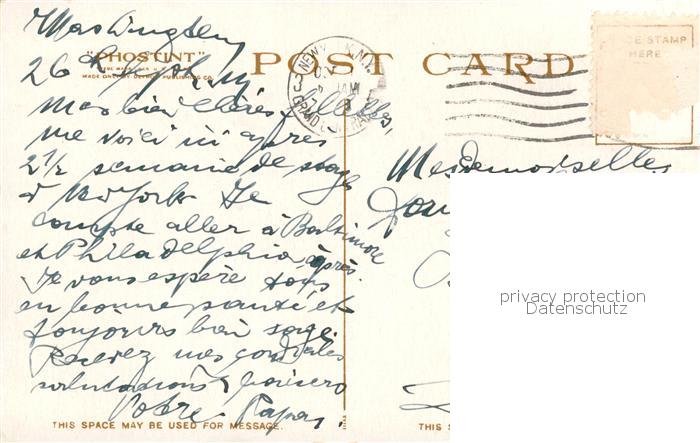 Washington
"PHOSTINT"
POST CARD
MADE ONLY BY DETROIT PUBLISHING CO.
PLACE STAMP
HERE
NEW YORK, N.Y.
26
Mes bien chères filles,
me voici ici après
2 1/2 semaine de stage
à New York Je
compte aller à Baltimore
et Philadelphia après.
Je vous espère tous
en bonne santé et
toujours bien sage.
Recevez mes cordiales
salutations baisers
Votre Papa,
Mesdemoiselles
privacy protection
Datenschutz
THIS SPACE MAY BE USED FOR MESSAGE.
THIS S